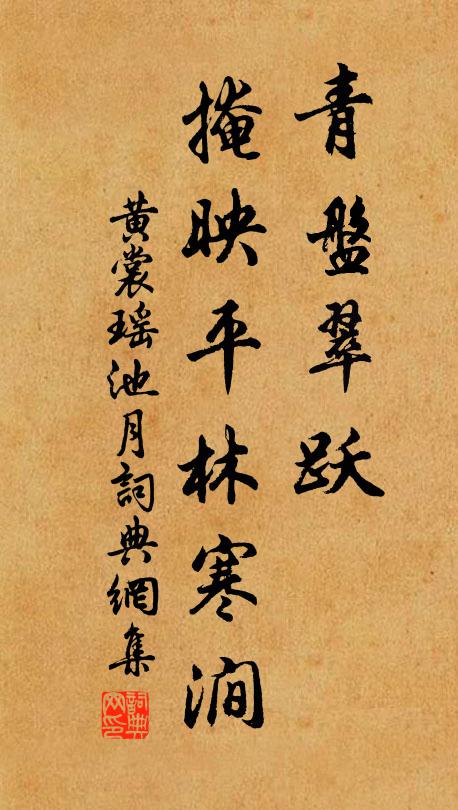 青盤翠跃
掩映平林寒澗
黃裳瑶池月詞典網集
詞典网印